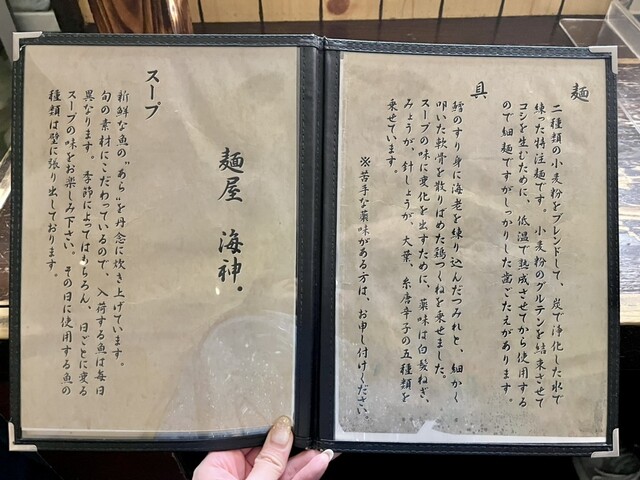 麺
二種類の小麦粉をブレンドして、炭で浄化した水で
練った特注麺です。小麦粉のグルテンを結束させて
コシを生むために、低温で熟成させてから使用する
ので細麺ですがしっかりした歯ごたえがあります。
具
鱈のすり身に海老を練り込んだつみれと、細かく
叩いた軟骨を散りばめた鶏つくねを乗せました。
スープの味に変化を出すために、薬味は白髪ねぎ、
みょうが、針しょうが、大葉、糸唐辛子の五種類を
乗せています。
※苦手な薬味がある方は、お申し付けください。
麺屋 海神。
スープ
新鮮な魚の〝あら〟を丹念に炊き上げています。
旬の素材にこだわっているので、入荷する魚は毎日
異なります。季節によってはもちろん、日ごとに変る
スープの味をお楽しみ下さい。その日に使用する魚の
種類は壁に張り出しております。